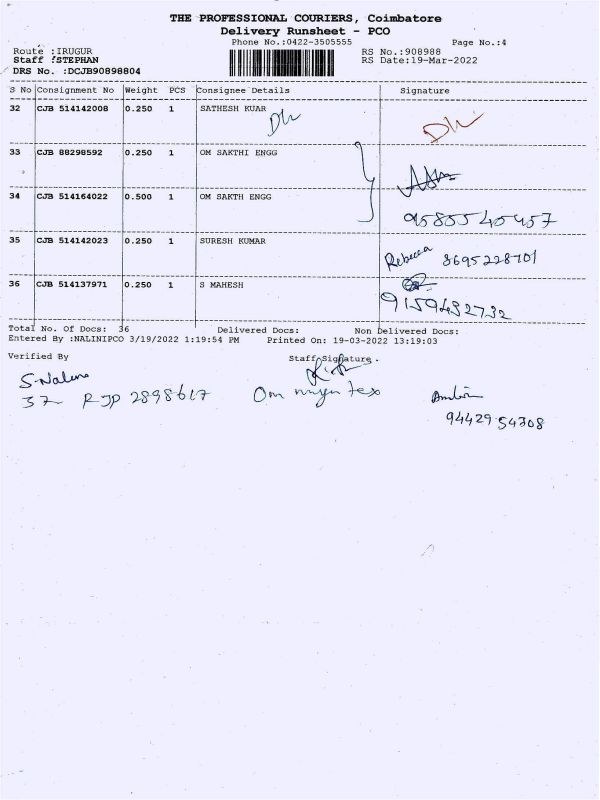 THE PROFESSIONAL COURIERS, Coimbatore
Delivery Runsheet - PCO
Phone No.:0422-3505555 Page No.:4
Route :IRUGUR RS No.:908988
Staff :STEPHAN RS Date:19-Mar-2022
DRS No. :DCJB90898804
S No Consignment No Weight PCS Consignee Details Signature
32 CJB 514142008 0.250 1 SATHESH KUAR
33 CJB 88298592 0.250 1 OM SAKTHI ENGG
34 CJB 514164022 0.500 1 OM SAKTH ENGG
9585545457
35 CJB 514142023 0.250 1 SURESH KUMAR
Rebecca 8695228701
36 CJB 514137971 0.250 1 S MAHESH
9159492732
Total No. Of Docs: 36 Delivered Docs: Non Delivered Docs:
Entered By :NALINIPCO 3/19/2022 1:19:54 PM Printed On: 19-03-2022 13:19:03
Verified By Staff Signature.
S. Nalini
37 RJP 2898617 Om tex
94429 54308